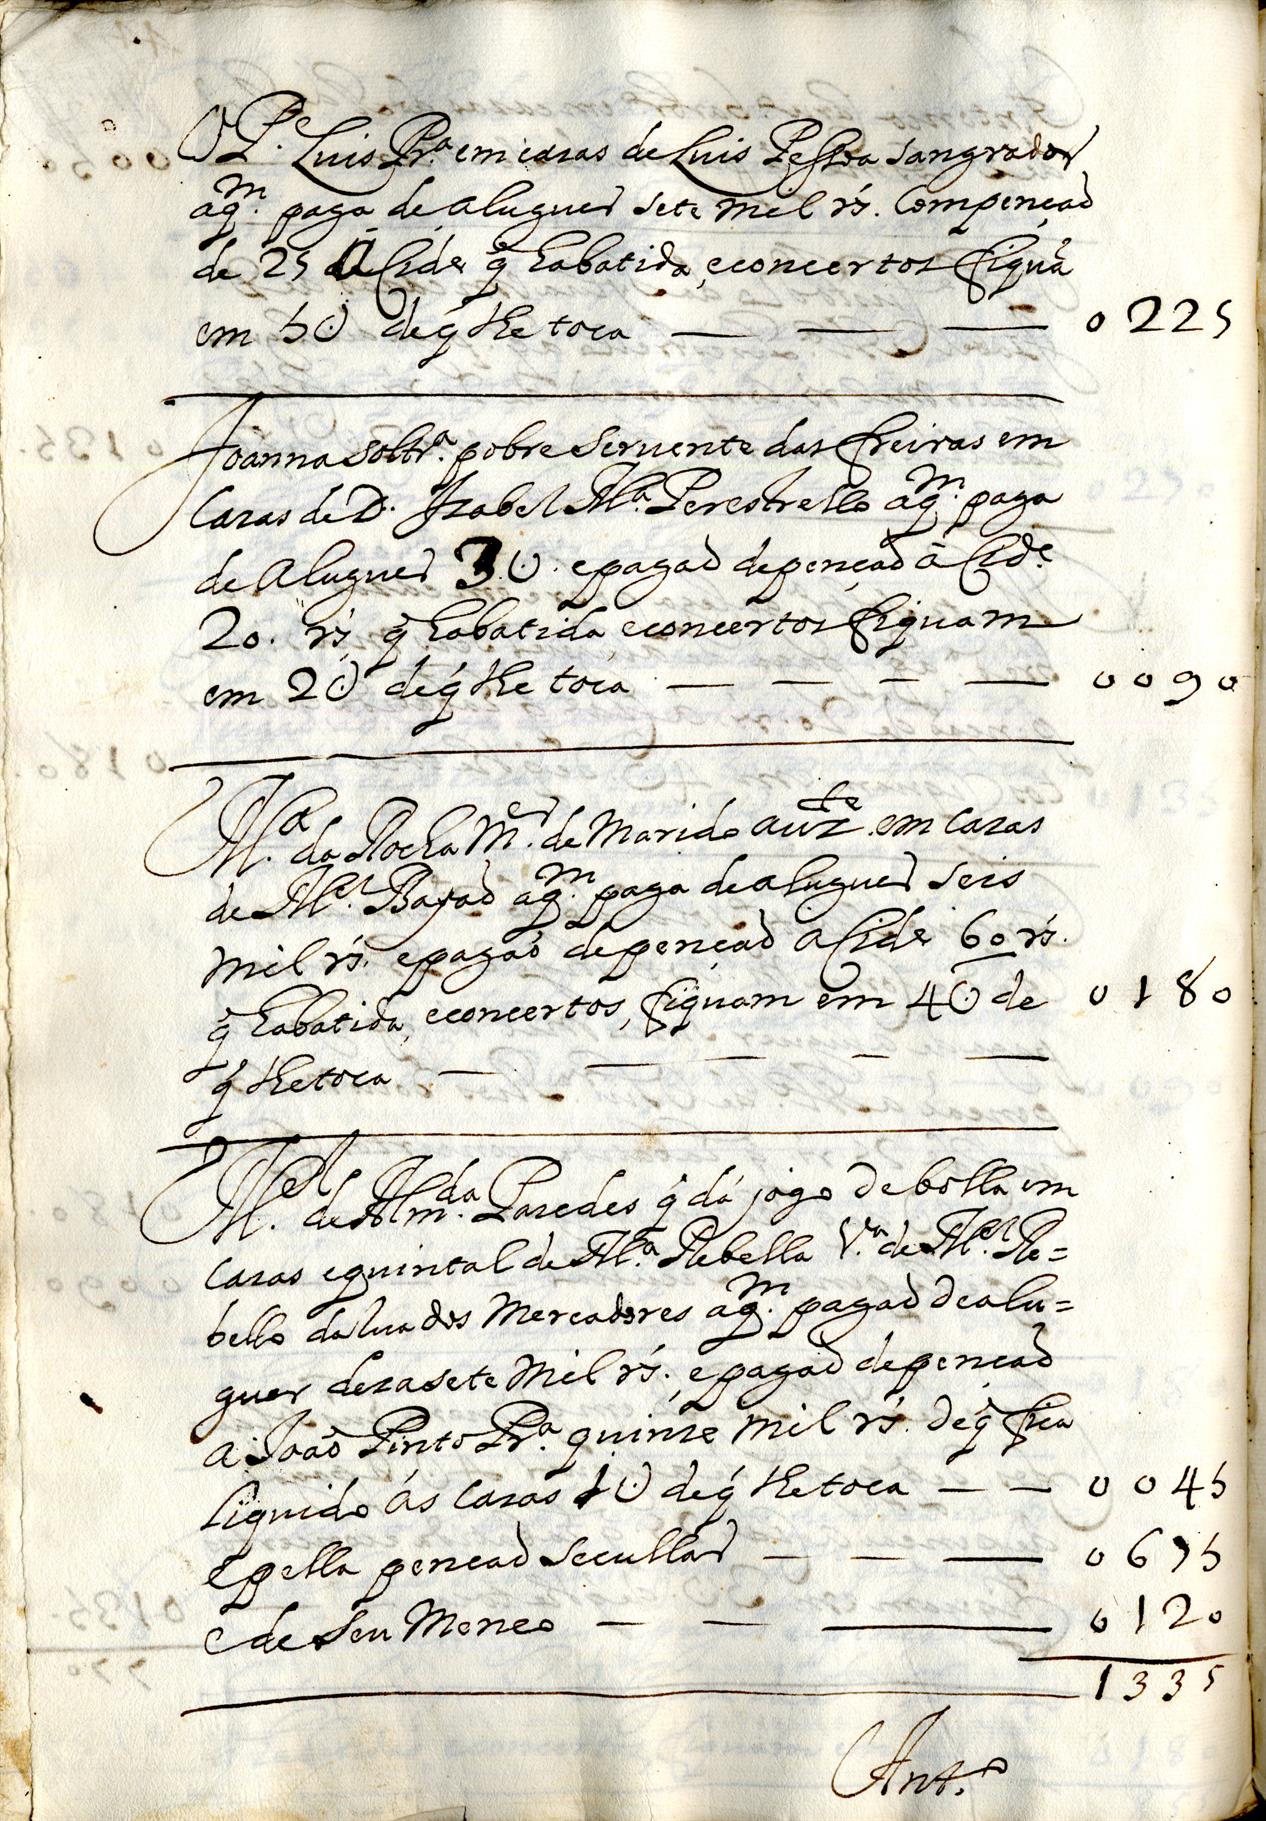 O P.e Luis Pr.a em cazas de Luis Pessoa sangrador
aq.m paga de aluguer sete mil rs. Com pençaõ
de 25 á Cid.e q̃ Eabatida, econcertos ficuã
em 5U deq̃ lhe toca — — — 0225
Joanna soltr.a pobre seruente das freiras em
Cazas de D. Izabel M.a Perestrello aq.m paga
de Aluguer 3U. epagaõ depençaõ á Cid.e
20. rs q̃ Eabatida econcertos ficuam
em 2U deq̃ lhe toca — — — — 0090
M.a da Rocha M.er de Marido auz.te em Cazas
de M.el Bayaõ aq.m paga de aluguer seis
mil rs. epagaõ depençaõ a Cid.e 60 rs.
q̃ Eabatida, econcertos, ficuam em 4U de 0180
q̃ lhe toca — — — — —
M.el de Alm.da Paredes q̃ dá jogo de bolla em
Cazas equintal de M.a Rebella V.a de M.el Re=
bello da Rua dos Mercadores aq.m pagaõ dealu=
guer dezasete Mil rs. epagaõ depençaõ
a Joaõ Pinto Pr.a quinze mil rs. deq̃ fica
Liquido ás Cazas 1U deq̃ lhe toca — — 0045
epella pencaõ secullar — — — 0675
e de seu Meneo — — — 0120
1335
Ant.o